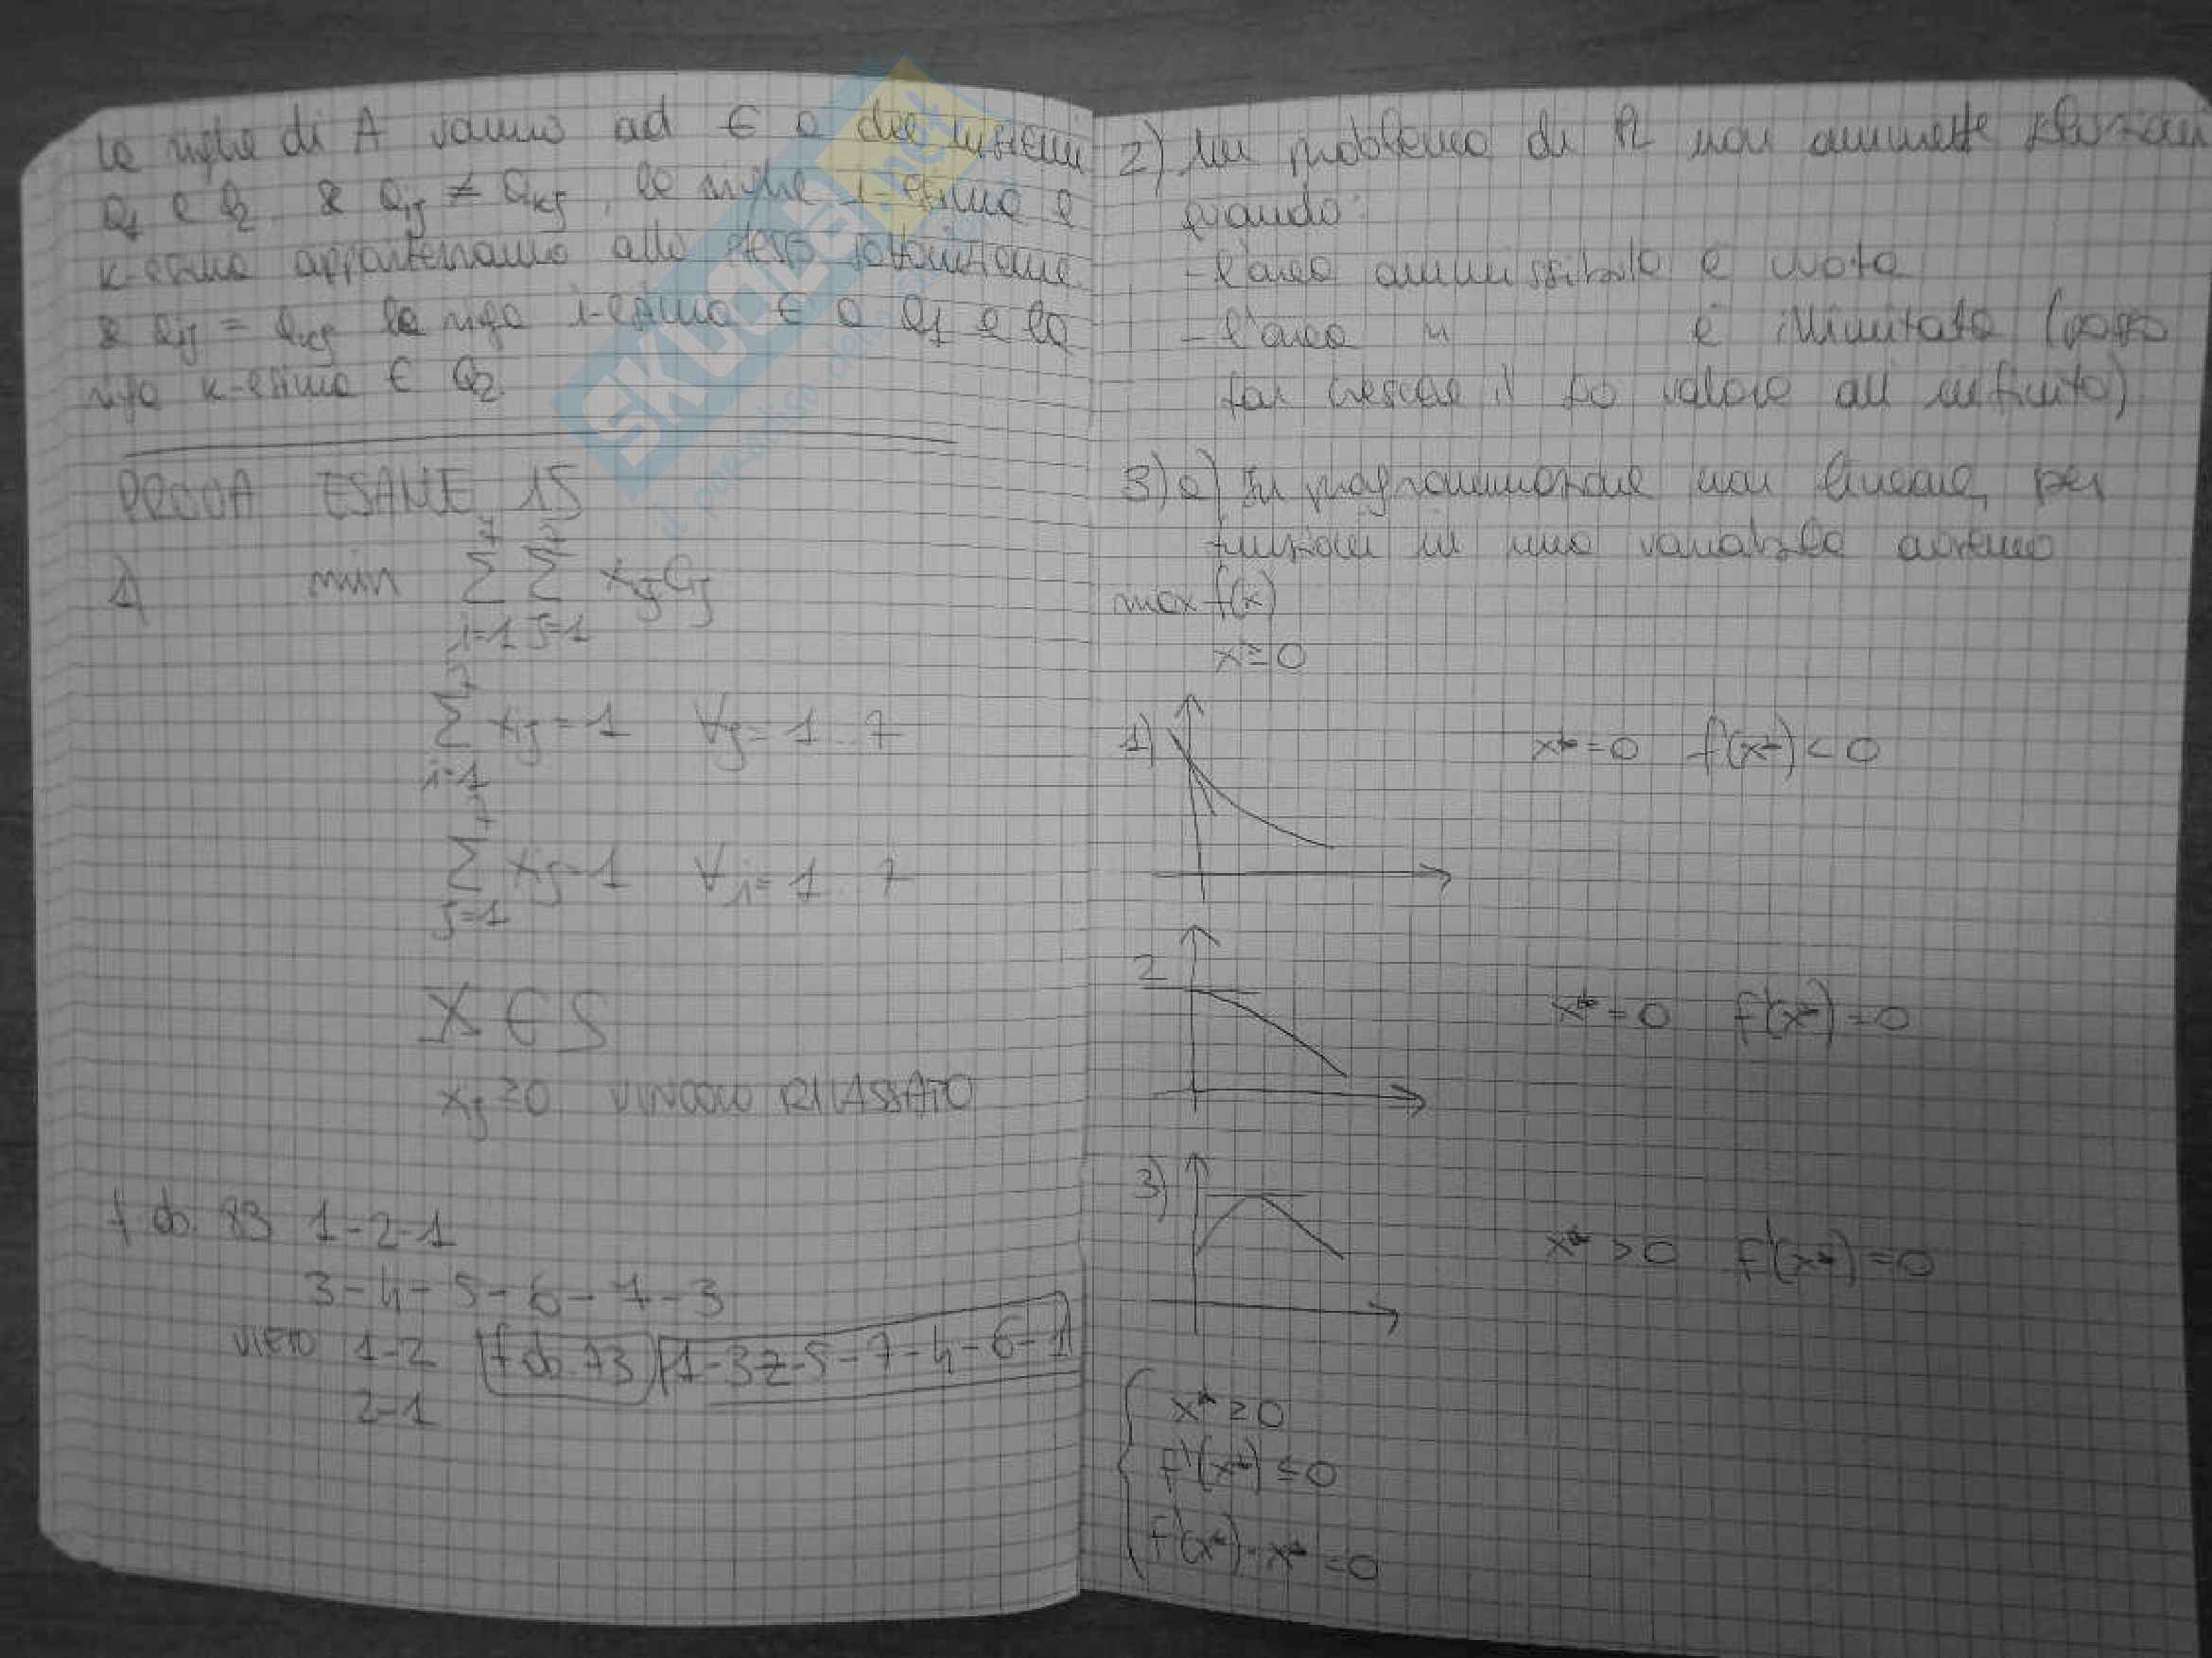 le righe di A vanno ad ∈ a due insiemi
Q1 e Q2. Se aij ≠ akj, le righe i-esima e
k-esima apparterranno allo stesso sottoinsieme.
Se aij = akj la riga i-esima ∈ a Q1 e la
riga k-esima ∈ Q2.
PROVA ESAME 15
1) min Σ i=1 7 Σ j=1 7 xij Cij
Σ i=1 7 xij = 1 ∀j = 1..7
Σ j=1 7 xij = 1 ∀i = 1..7
X ∈ S
xij ≥ 0 VINCOLO RILASSATO
f ob. 83 1-2-1
3-4-5-6-7-3
VIETO 1-2 f ob. 73 1-3-2-5-7-4-6-1
2-1
2) Un problema di PL non ammette soluzioni
quando:
- l'area ammissibile è vuota
- l'area " è illimitata (posso
far crescere il suo valore all'infinito)
3) a) In programmazione non lineare, per
funzioni in una variabile avremo
max f(x)
x ≥ 0
1) x* = 0 f'(x*) < 0
2 x* = 0 f'(x*) = 0
3) x* > 0 f'(x*) = 0
x* ≥ 0
f'(x*) ≤ 0
f'(x*) · x* = 0
SKUOLA.net